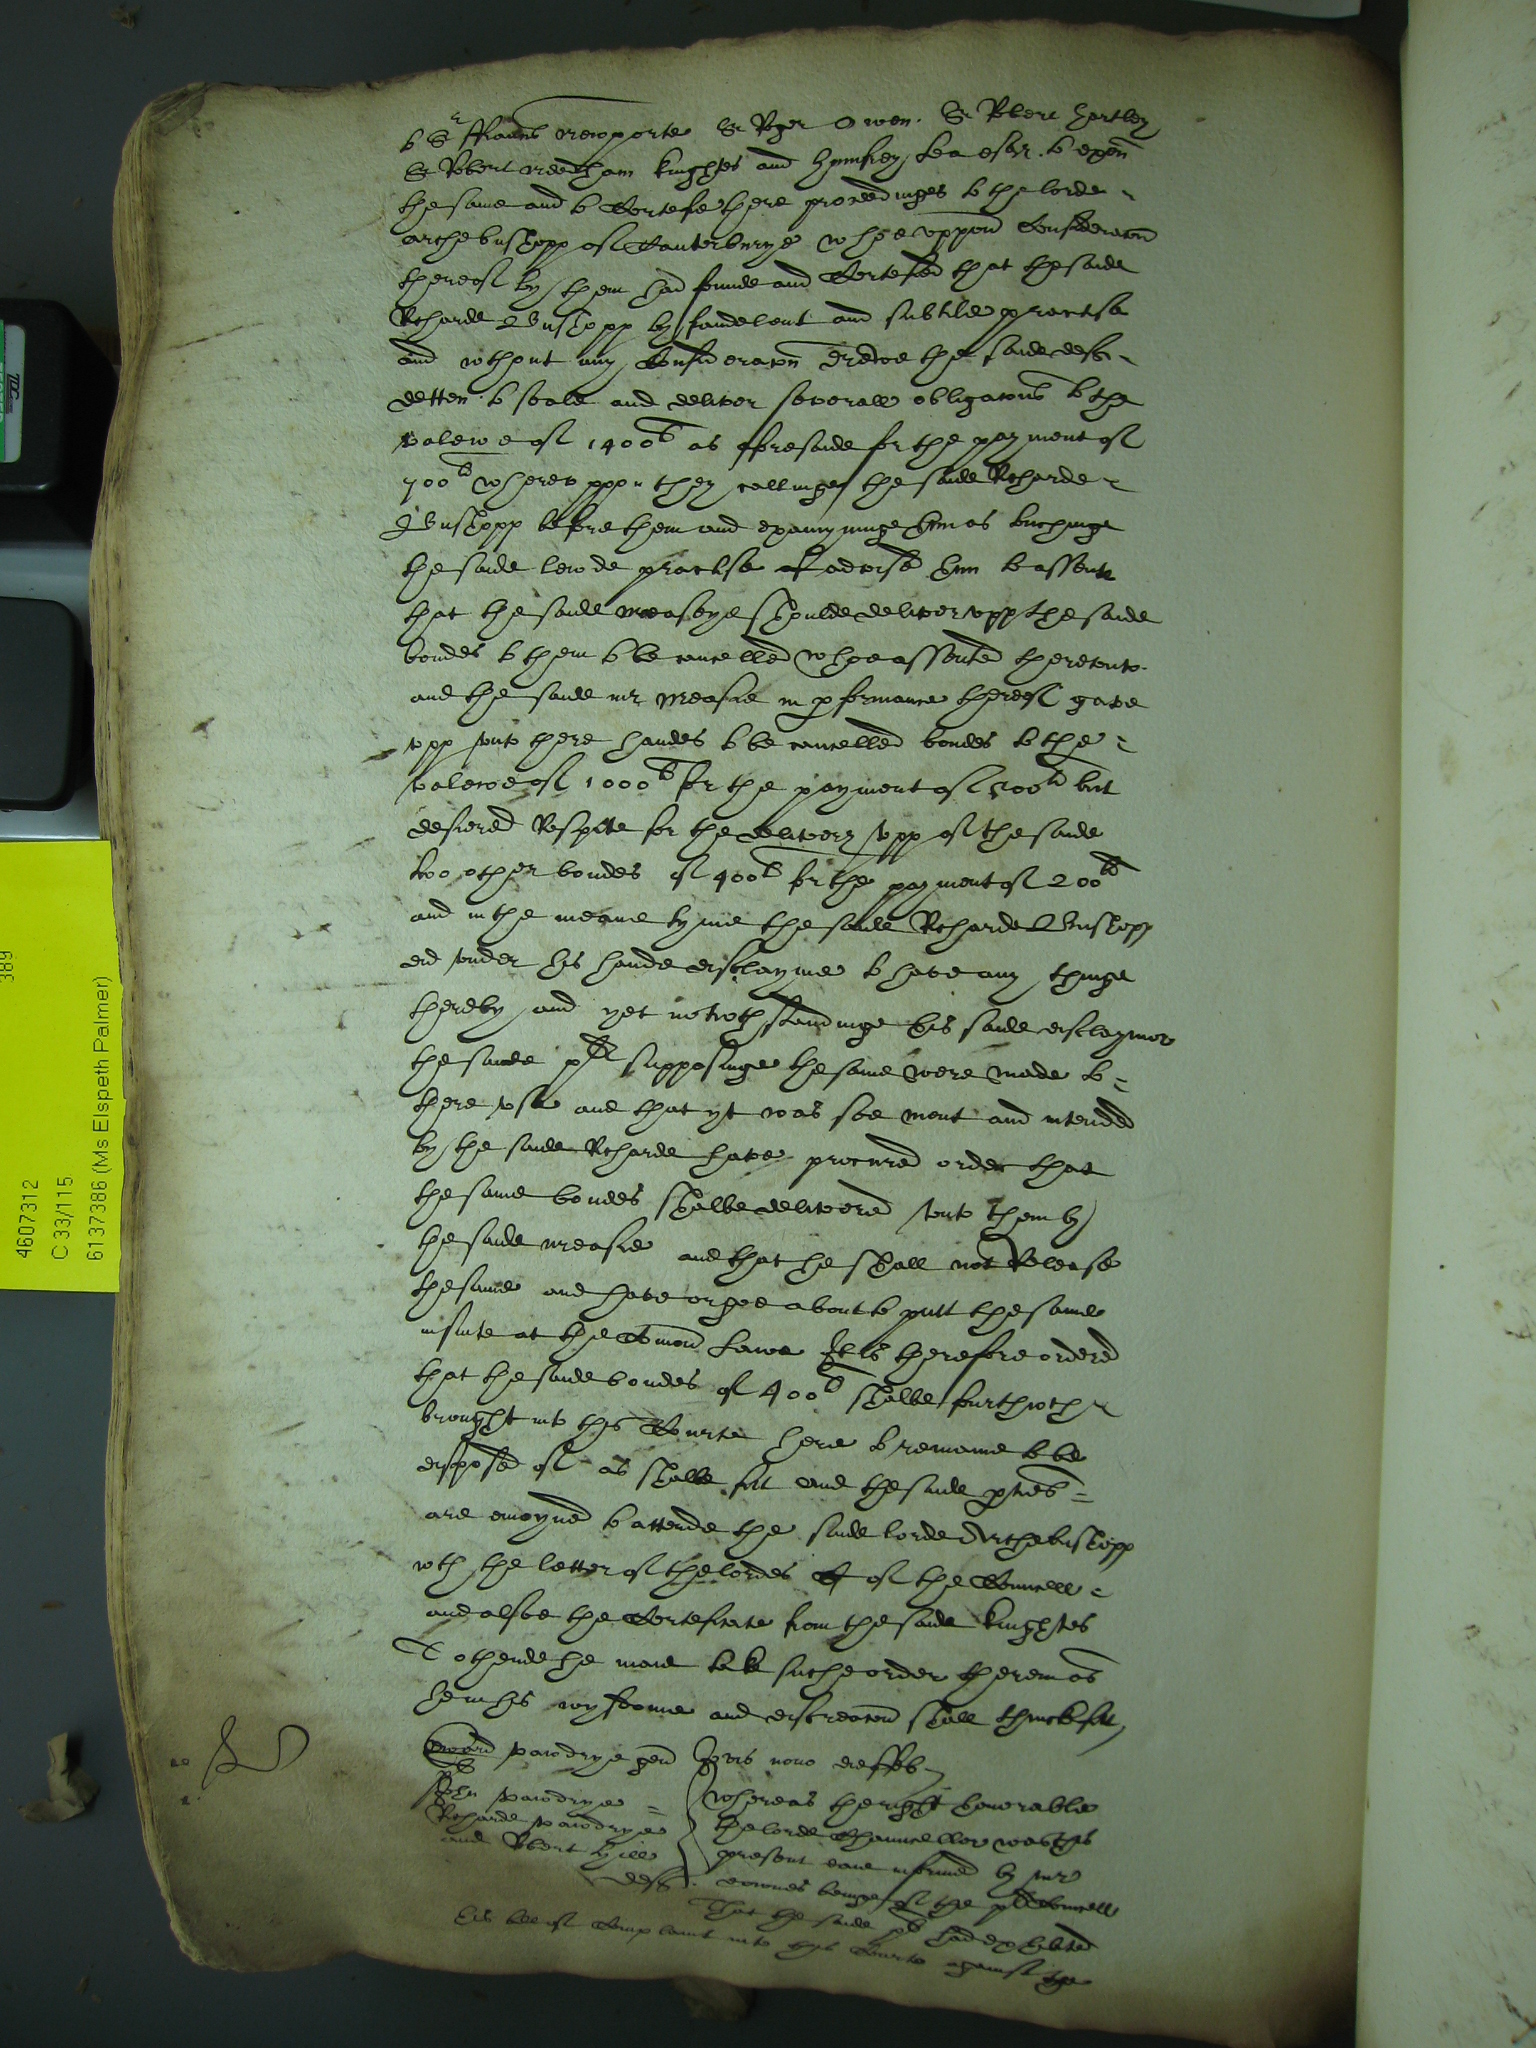 to Sr Frauncs Newporte Sr Roger Owen Sr Robert Hartley
Sr Robert Needham knightes and Humfrey Lea esqr to exam
the same and to Certefie there proceedinges to the lorde
archebusshopp of Canterburye whoe uppon Consideracon
thereof by them had founde and Certefied that the saide
Richarde Busshopp by faudelent and subtile practise
and without any Consideracon drewe the saide
to seale and deliver severall obligacons to the
valewe of 1400li as aforesaide for the payment of
700li whereuppon they callinge the saide Richarde
Busshopp before them and examyninge him as tuchinge
the saide lewde practise advise him to assente
that the saide Measeye shoulde deliver upp the saide
bondes to them to be cancelled whoe assented thereunto
and the saide mr Measie in pformance thereof gave
upp unto there handes to be cancelled bondes to the
valewe of 1000li for the payment of 500li but
desiered Respite for the delivery upp of the saide
two other bondes of 400li for the payment of 200li
and in the meane tyme the saide Richarde Busshopp
did under his hande disclayme to have any thinge
thereby and yet notwthstandinge his saide disclaymer
the saide plts supposinge the same were made to
there use and that yt was soe ment and intended
by the saide Richarde have procured order that
the same bondes shalbe delivered unto them by
the saide Measie and that he shall not Release
the same and have or goe about to putt the same
in suite at the Comon Lawe It is therefore ordered
that the saide bondes of 400li shalbe fourthwth
brought into this Courte here to remaine to be
disposed of as shalbe fitt and the saide pties
are enioyned to attende the saide lorde Archebusshopp
wth the letter of the lordes & of the Councell
and alsoe the Certeficate from the saide knightes
To thende he maie take suche order therein as
he in his wysdome and discreacon shall thincke fitt
Edward Vawdrye gen
John Vawdrye
Richarde Vawdrye
and Robert Hill
def
Whereas the right honorable
the lorde Chauncellor was this
present daie informed by mr
beinge of the plts Councell
That the saide plt had exhibited
his bill of Complaint into this Courte against the
4607312
C 33/115
6137386 (Ms Elspeth Palmer)
389
TDC